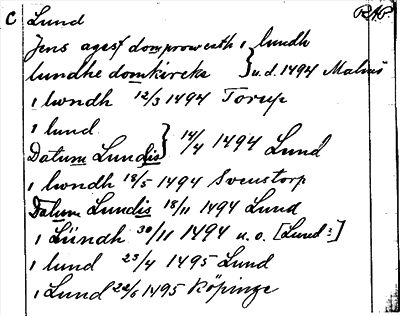 C Lund R.A.P.
Jens agesf domprowesth i lundh
lundhe domkircke } u.d. 1494 Malmö
i lwndh 12/3 1494 Torup
i lund
Datum Lundis } 14/4 1494 Lund
i lwndh 18/5 1494 Svenstorp
Datum Lundis 18/11 1494 Lund
i Lúndh 30/11 1494 u.o. [Lund?]
i lund 23/4 1495 Lund
i Lund 22/6 1495 Köpinge